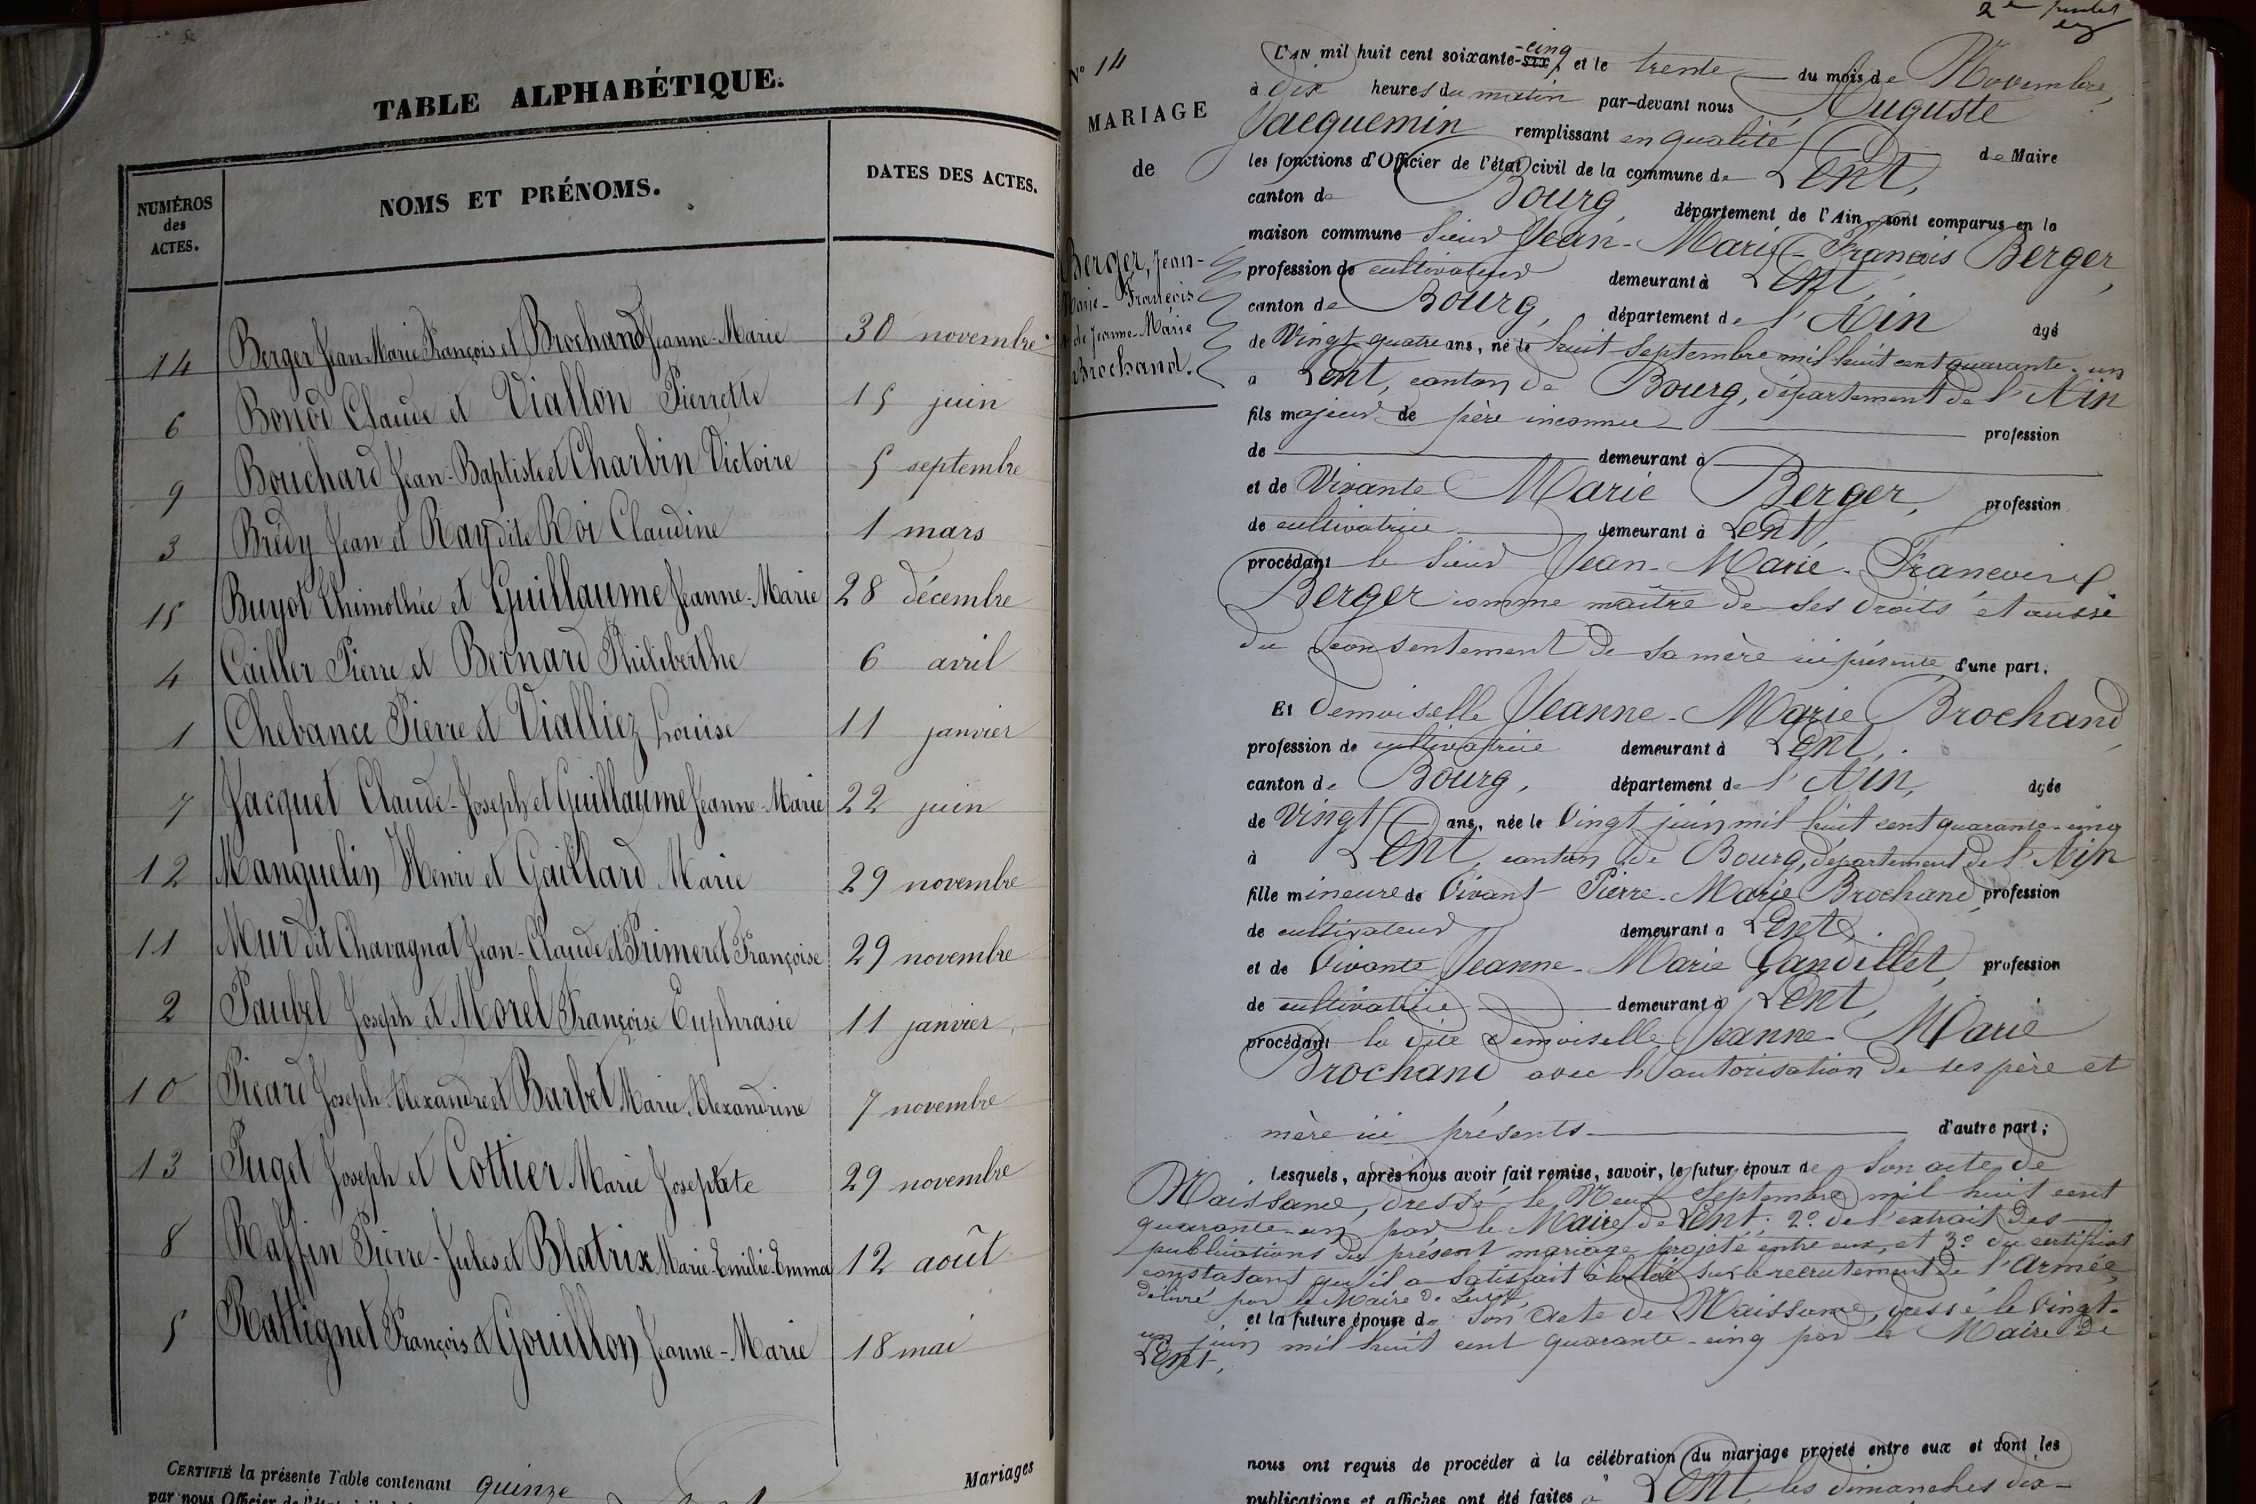 TABLE ALPHABÉTIQUE.
NUMÉROS des ACTES. NOMS ET PRÉNOMS. DATES DES ACTES.
14 Berger Jean-Marie François et Brochand Jeanne-Marie 30 novembre
6 Bonod Claude et Viallon Pierrette 15 juin
9 Bouchard Jean-Baptiste et Charbin Victoire 5 septembre
3 Bredy Jean et Ray dite Roi Claudine 1 mars
15 Buyot Thimothée et Guillaume Jeanne-Marie 28 décembre
4 Cailler Pierre et Bernard Philiberthe 6 avril
1 Chebance Pierre et Vialliez Louise 11 janvier
7 Jacquet Claude-Joseph et Guillaume Jeanne-Marie 22 juin
12 Manguelin Henri et Gaillard Marie 29 novembre
11 Mur dit Chavagnat Jean-Claude et Primeret Françoise 29 novembre
2 Paubel Joseph et Morel Françoise Euphrasie 11 janvier
10 Picard Joseph Alexandre et Barbet Marie Alexandrine 7 novembre
13 Puget Joseph et Cottier Marie Josephte 29 novembre
8 Raffin Pierre-Jules et Blatrix Marie-Emilie-Emma 12 août
5 Rattignet François et Gouillon Jeanne-Marie 18 mai
CERTIFIÉ la présente Table contenant quinze Mariages
par nous Officier de l'état civil
N° 14
MARIAGE
de
Berger, Jean-
Marie-François
et de Jeanne-Marie
Brochand.
L'AN mil huit cent soixante-six cinq et le trente du mois de Novembre,
à dix heures du matin par-devant nous Auguste
Jacquemin remplissant en qualité de Maire
les fonctions d'Officier de l'état civil de la commune de Lent,
canton de Bourg, département de l'Ain, sont comparus en la
maison commune sieur Jean-Marie-François Berger,
profession de cultivateur demeurant à Lent,
canton de Bourg, département de l'Ain âgé
de Vingt quatre ans, né le huit Septembre mil huit cent quarante-un
à Lent, canton de Bourg, département de l'Ain
fils majeur de père inconnu profession
de demeurant à
et de Vivante Marie Berger, profession
de cultivatrice demeurant à Lent,
procédant le sieur Jean-Marie-François
Berger comme maître de ses droits et aussi
du consentement de sa mère ici présente d'une part.
Et demoiselle Jeanne-Marie Brochand,
profession de cultivatrice demeurant à Lent,
canton de Bourg, département de l'Ain, âgée
de Vingt ans, née le Vingt juin mil huit cent quarante-cinq
à Lent, canton de Bourg, département de l'Ain
fille mineure de Vivant Pierre-Marie Brochand, profession
de cultivateur demeurant à Lent,
et de Vivante Jeanne-Marie Gandillet, profession
de cultivatrice demeurant à Lent,
procédant la dite demoiselle Jeanne-Marie
Brochand avec l'autorisation de ses père et
mère ici présents d'autre part;
Lesquels, après nous avoir fait remise, savoir, le futur époux de son acte de
Naissance, dressé le Neuf Septembre mil huit cent
quarante-un par le Maire de Lent; 2° de l'extrait des
publications du présent mariage projeté entre eux, et 3° du certificat
constatant qu'il a satisfait à la loi sur le recrutement de l'Armée,
délivré par le Maire de Lent,
et la future épouse de son Acte de Naissance, dressé le Vingt-
un juin mil huit cent quarante-cinq par le Maire de
Lent,
nous ont requis de procéder à la célébration du mariage projeté entre eux et dont les
publications et affiches ont été faites à Lent, les dimanches dix-